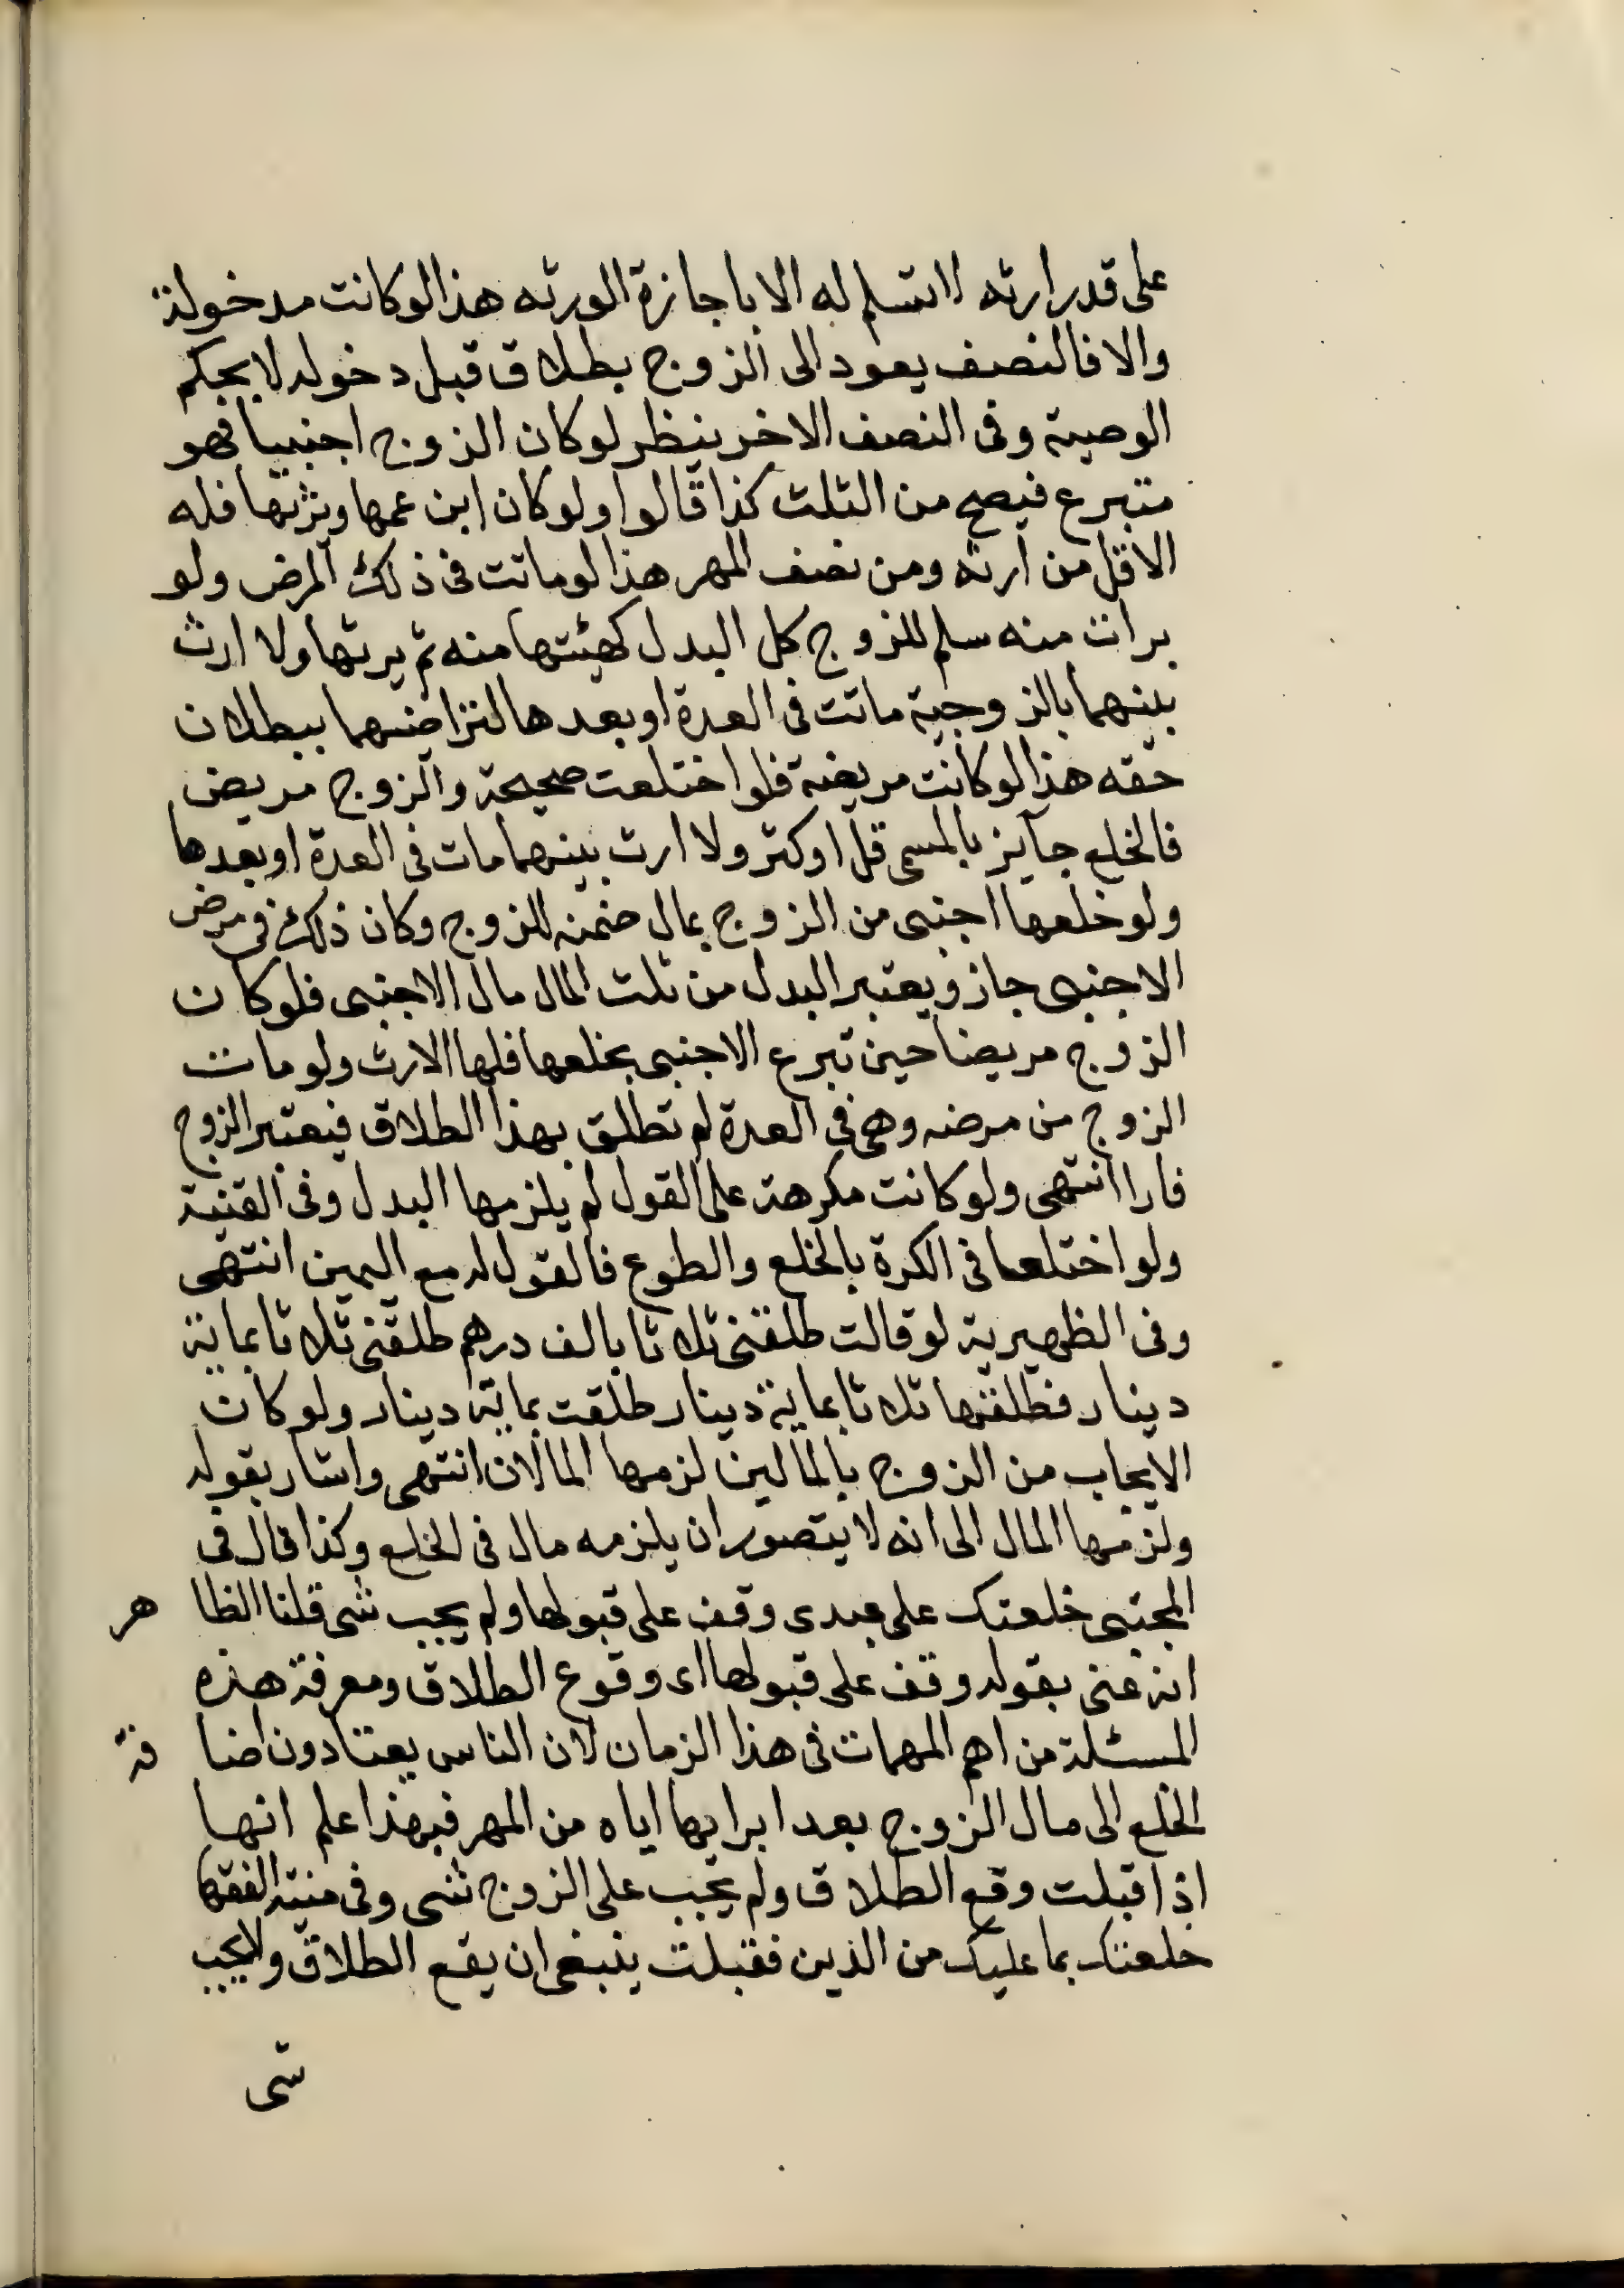 على قدر ارثه لا تسلم له الا باجازة الورثه هذا لو كانت مدخولة
والا فالنصف يعود الى الزوج بطلاق قبل دخوله لا بحكم
الوصية وفى النصف الاخر ينظر لو كان الزوج اجنبيا فهو
متبرع فيصح من الثلث كذا قالوا ولو كان ابن عمها ويرثها فله
الاقل من ارثه ومن نصف المهر هذا لو ماتت فى ذلك المرض ولو
برات منه سلم للزوج كل البدل كهبتها منه ثم يرثها ولا ارث
بينهما بالزوجية ماتت فى العدة او بعدها لتراضيهما ببطلان
حقه هذا لو كانت مريضة فلو اختلعت صحيحة والزوج مريض
فالخلع جايز بالمسمى قل او كثر ولا ارث بينهما مات فى العدة او بعدها
ولو خلعها اجنبى من الزوج بمال ضمنه للزوج وكان ذلك فى مرض
الاجنبى جاز ويعتبر البدل من ثلث المال مال الاجنبى فلو كان
الزوج مريضا حين تبرع الاجنبى بخلعها فلها الارث ولو مات
الزوج من مرضه وهى فى العدة لم تطلق بهذا الطلاق فيعتبر الزوج
فارا انتهى ولو كانت مكرهة على القول لم يلزمها البدل وفى القنية
ولو اختلعا فى الكرة بالخلع والطوع فالقول له مع اليمين انتهى
وفى الظهيرية لو قالت طلقنى ثلاثا بالف درهم طلقنى ثلاثا بماية
دينار فطلقها ثلاثا بماية دينار طلقت بماية دينار ولو كان
الايجاب من الزوج بالمالين لزمها المالان انتهى واشار بقوله
ولزمها المال الى انه لا يتصور ان يلزمه مال فى الخلع وكذا قال فى
المجتبى خلعتك على عبدى وقف على قبولها ولم يجب شى قلنا الظاهر
انه عنى بقوله وقف على قبولها اى وقوع الطلاق ومعرفة هذه
المسئلة من اهم المهمات فى هذا الزمان لان الناس يعتادون اضافة
الخلع الى مال الزوج بعد ابرايها اياه من المهر فبهذا علم انها
اذا قبلت وقع الطلاق ولم يجب على الزوج شى وفى منية الفقها
خلعتك بما عليك من الدين فقبلت ينبغى ان يقع الطلاق ولا يجب
شى